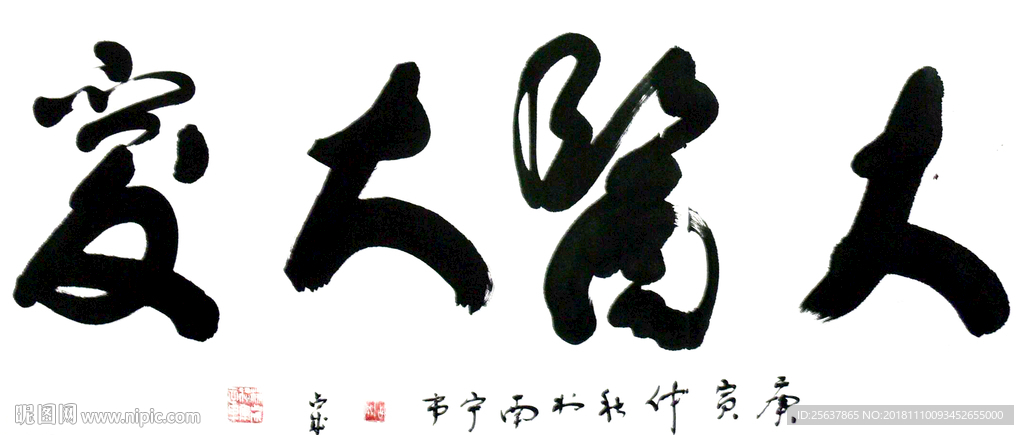 大醫大愛
庚寅仲秋於南宁韦
昵图网 www.nipic.com
ID:25637865 NO:20181110093452655000